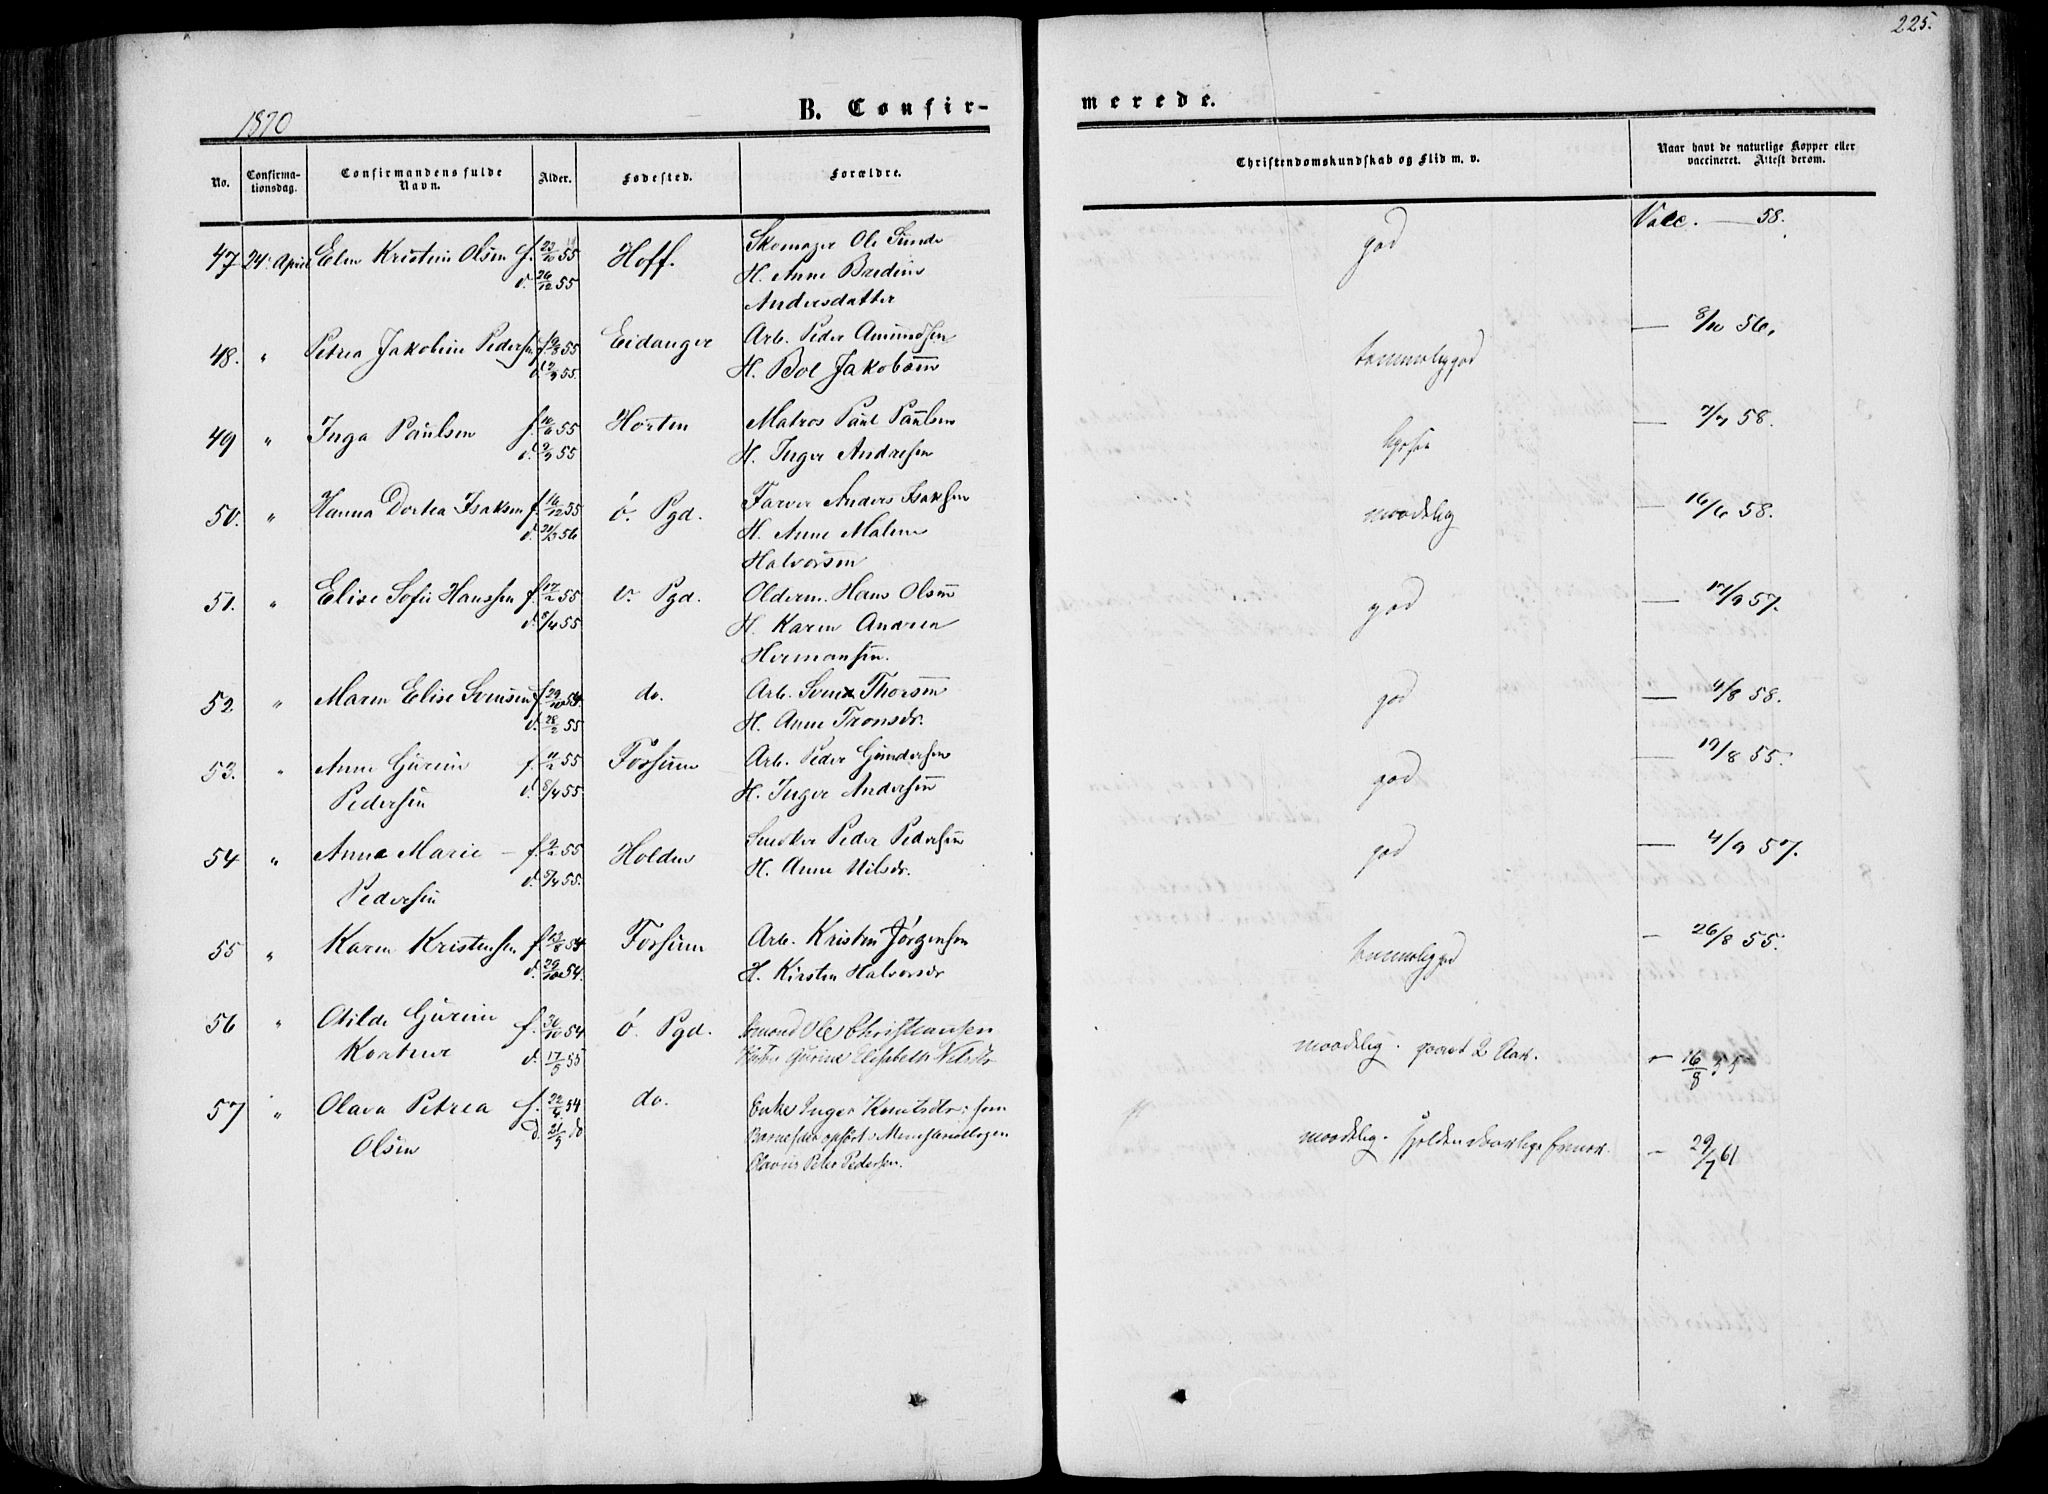 225.
1870
B. Confir-
merede.
No.
Confirma-
tionsdag.
Confirmandens fulde
Navn.
Alder.
Fødested.
Forældre.
Christendomskundskab og Flid m. v.
Naar havt de naturlige Kopper eller
vaccineret. Attest derom.
47 24. April Elen Kristine Olsen f. 23/10 55 Hoff. Skomager Ole Sunde god Vacc. — 58.
d. 26/12 55 H. Anne Bardine
Andersdatter
48. " Petrea Jakobine Pedersen f. 9/8 55 Eidanger Arb. Peder Amundsen temmelig god — 8/10 56.
d. 2/9 55. H. Bol Jakobsen
49 " Inga Paulsen f. 10/6 55 Horten Matros Paul Paulsen — 7/7 58.
d. 2/9 55 H. Inger Andresen
50. " Hanna Dortea Isaksen f. 16/12 55 ö. Pgd. Farver Anders Isaksen maadelig — 16/6 58.
d. 21/3 56 H. Anne Malene
Halvorsen
51. " Elise Sofie Hanssen f. 17/2 55 v. Pgd. Olderm. Hans Olsen god — 17/9 57.
d. 8/4 55. H. Karen Andrea
Hermansen.
52 " Maren Elise Svensen f. 29/10 54. do. Arb. Svend Thorsen god — 4/8 58.
d. 28/2 55 H. Anne Tronsdr.
53. " Anne Gurine f. 11/2 55 Fossum Arb. Peder Gundersen god — 19/8 55.
Pedersen d. 8/4 55. H. Inger Andersen
54 " Anne Marie — f. 9/2 55 Holden Snedker Peder Pedersen god — 4/9 57.
Pedersen d. 8/4 55. H. Anne Nilsdr.
55 " Karen Kristensen f. 13/8 54. Fossum Arb. Kristen Jörgensen temmelig god — 26/8 55.
d. 29/10 54. H. Kirsten Halvorsdr
56 " Otilde Gurine f. 30/10 54. ö. Pgd. Ole Christiansen maadelig. 2 — 16/8 55
d. 17/5 55 Gurine Elisabeth Nilsdr
57 " Olava Petrea f. 22/4 54 do. Enke Inger Knutsdr. som maadelig. — 29/7 61
Olsen d. 21/5 do Barnefader opført: Menichandlegen
Olavus Peter Pedersen.